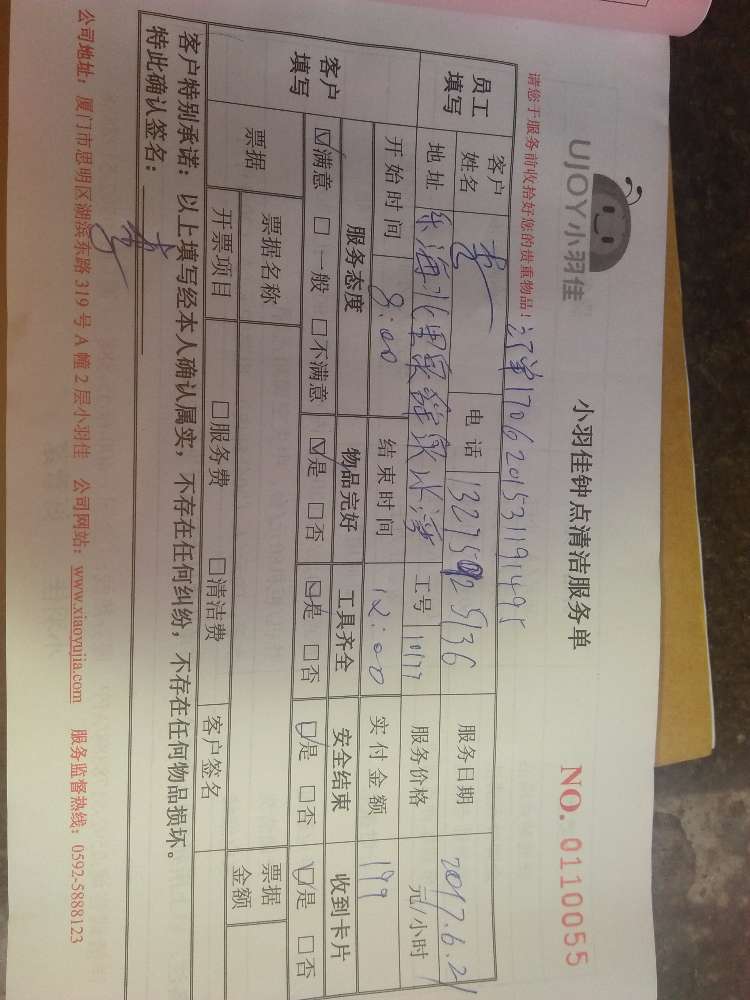 UJOY小羽佳
小羽佳钟点清洁服务单
NO. 0110055
请您于服务前收拾好您的贵重物品！
订单1706201531191495
员工填写 客户姓名 李 电话 服务日期 2017.6.21
地址 工号 10177 服务价格 元/小时
开始时间 9:00 结束时间 12:00 实付金额 199
客户填写 服务态度 物品完好 工具齐全 安全结束 收到卡片
☑满意 □一般 □不满意 ☑是 □否 ☑是 □否 ☑是 □否 ☑是 □否
票据 票据名称 □服务费 □清洁费 客户签名 票据金额
开票项目
客户特别承诺：以上填写经本人确认属实，不存在任何纠纷，不存在任何物品损坏。
特此确认签名：
公司地址：厦门市思明区湖滨东路319号A幢2层小羽佳 公司网站：www.xiaoyujia.com 服务监督热线：0592-5888123